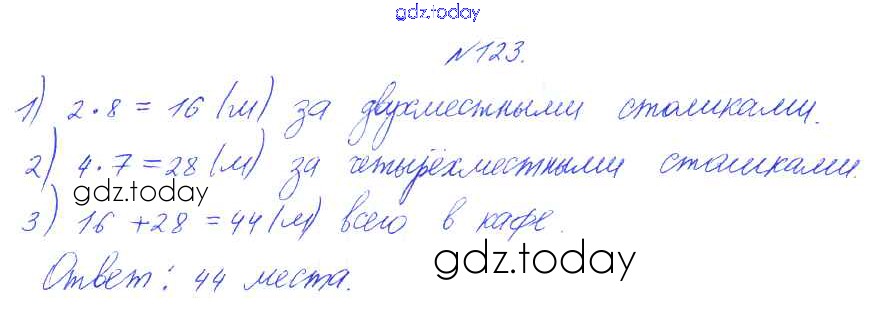 gdz.today
№123.
1) 2·8=16 (м) за двухместными столиками.
2) 4·7=28 (м) за четырёхместными столиками.
gdz.today
3) 16+28=44 (м) всего в кафе.
gdz.today
Ответ: 44 места.